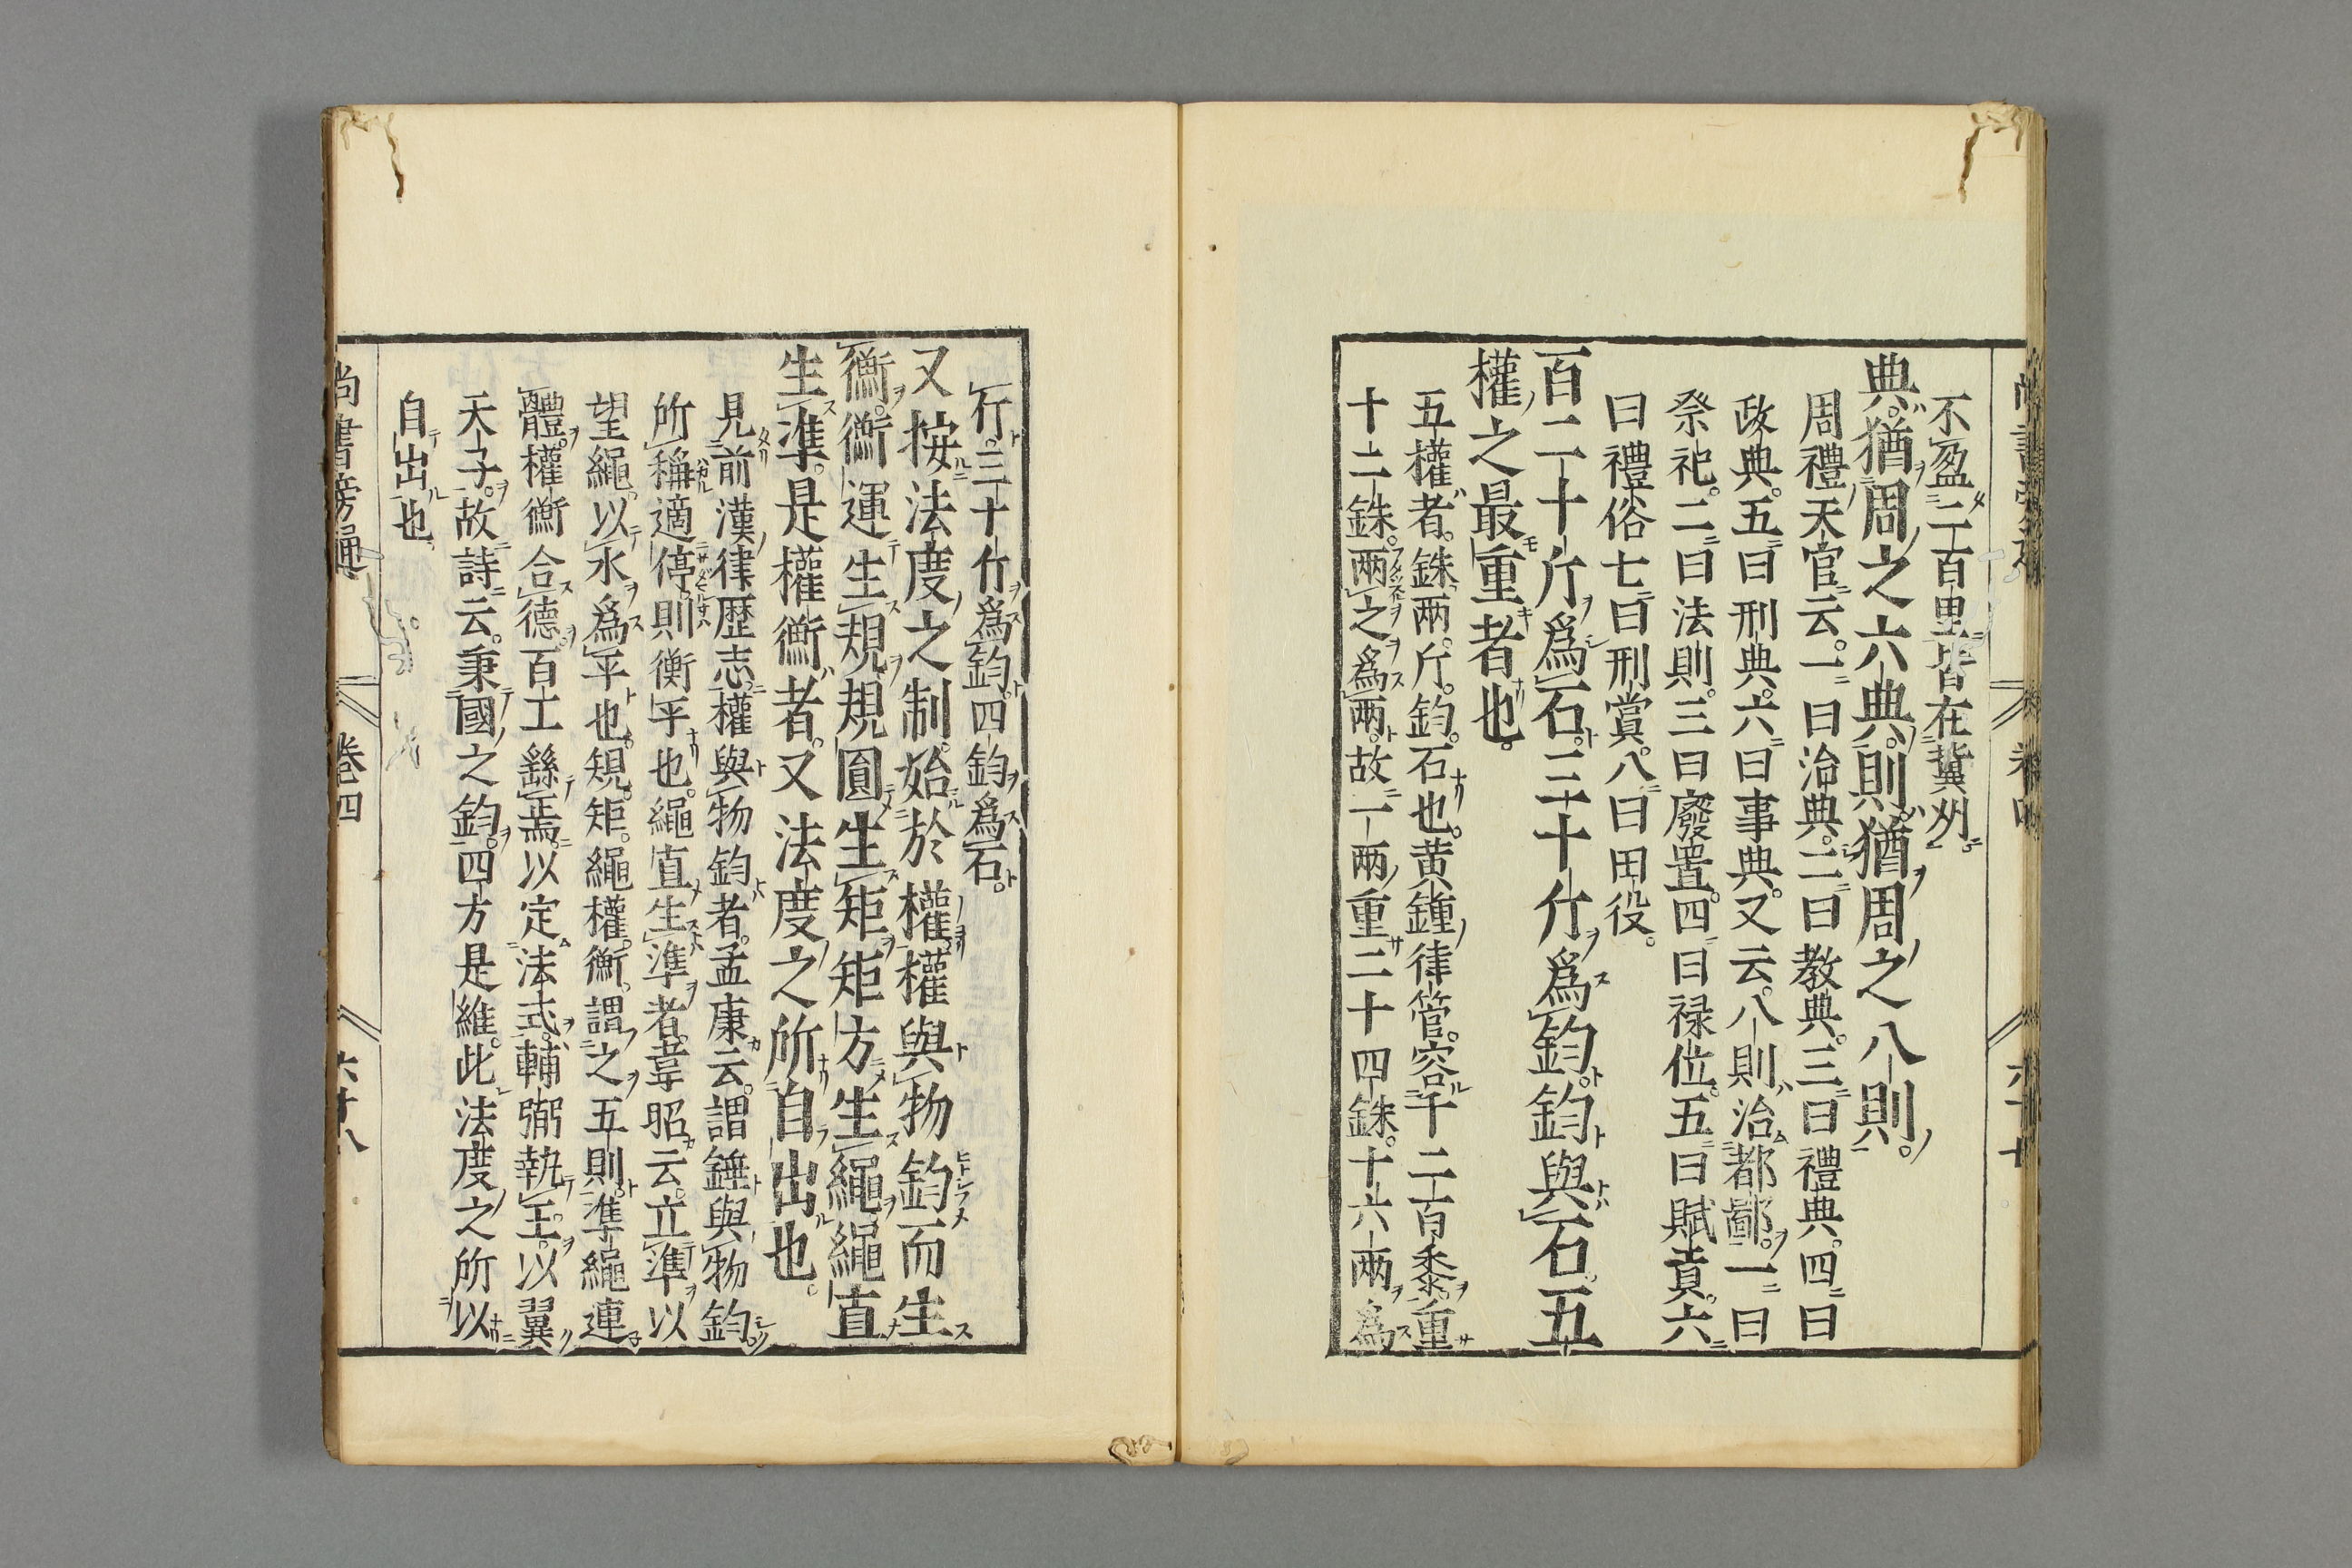 不盈二百里皆在冀州。
典。猶周之六典。則。猶周之八則。
周禮天官云。一曰治典。二曰教典。三曰禮典。四曰
政典。五曰刑典。六曰事典。又云。八則治都鄙。一曰
祭祀。二曰法則。三曰廢置。四曰祿位。五曰賦貢。六
曰禮俗七曰刑賞。八曰田役。
百二十斤爲石。三十斤爲鈞。鈞與石。五
權之最重者也。
五權者。銖。兩。斤。鈞。石也。黃鐘律管。容千二百黍。重
十二銖。兩之爲兩。故一兩重二十四銖。十六兩爲
斤。三十斤爲鈞。四鈞爲石。
又按法度之制。始於權。權與物鈞而生
衡。衡運生規。規圓生矩。矩方生繩。繩直
生準。是權衡者。又法度之所自出也。
見前漢律歷志。權與物鈞者。孟康云。謂錘與物鈞。
所稱適停。則衡平也。繩直生準者。韋昭云。立準以
望繩。以水爲平也。規。矩。繩。權。衡。謂之五則。準繩連
體。權衡合德。百工繇焉。以定法式。輔弼執玉。以翼
天子。故詩云。秉國之鈞。四方是維。此法度之所以
自出也。
尚書旁通 卷四 六十八